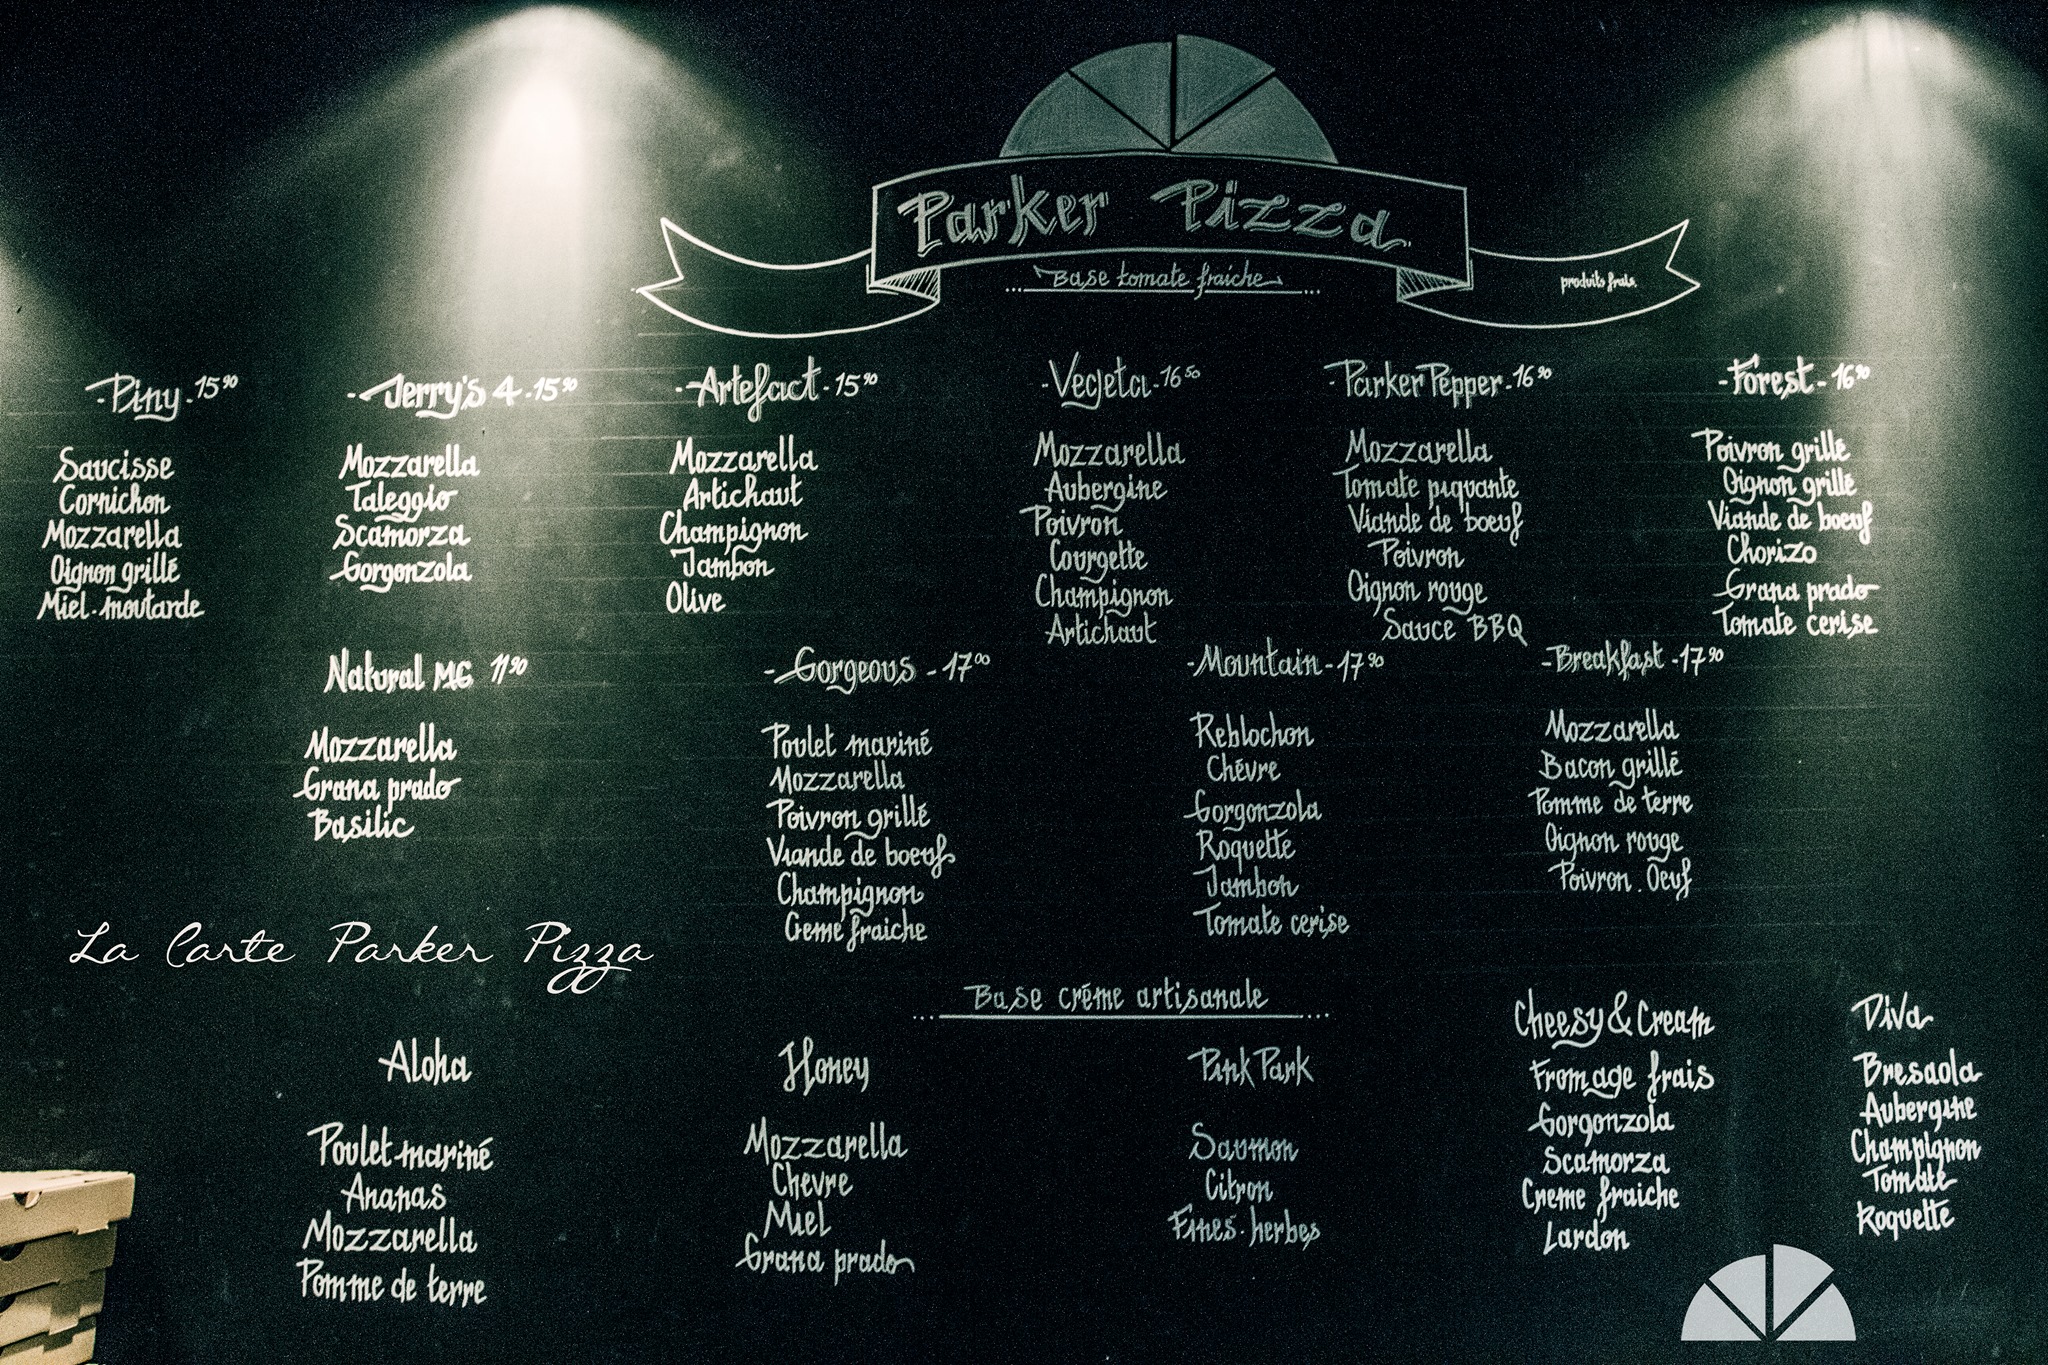 Parker Pizza
Base tomate fraiche
produits frais.
- Piny - 15⁹⁰
Saucisse
Cornichon
Mozzarella
Oignon grillé
Miel-moutarde
- Jerry's 4 - 15⁹⁰
Mozzarella
Taleggio
Scamorza
Gorgonzola
- Artefact - 15⁹⁰
Mozzarella
Artichaut
Champignon
Jambon
Olive
- Vegeta - 16⁵⁰
Mozzarella
Aubergine
Poivron
Courgette
Champignon
Artichaut
- Parker Pepper - 16⁹⁰
Mozzarella
Tomate piquante
Viande de boeuf
Poivron
Oignon rouge
Sauce BBQ
- Forest - 16⁹⁰
Poivron grillé
Oignon grillé
Viande de boeuf
Chorizo
Grana prado
Tomate cerise
Natural MG 11⁹⁰
Mozzarella
Grana prado
Basilic
- Gorgeous - 17⁰⁰
Poulet mariné
Mozzarella
Poivron grillé
Viande de boeuf
Champignon
Creme fraiche
- Mountain - 17⁹⁰
Reblochon
Chévre
Gorgonzola
Roquette
Jambon
Tomate cerise
- Breakfast - 17⁹⁰
Mozzarella
Bacon grillé
Pomme de terre
Oignon rouge
Poivron . Oeuf
La Carte Parker Pizza
Base créme artisanale
Aloha
Poulet mariné
Ananas
Mozzarella
Pomme de terre
Honey
Mozzarella
Chevre
Miel
Grana prado
Pink Park
Saumon
Citron
Fines-herbes
Cheesy & Cream
Fromage frais
Gorgonzola
Scamorza
Creme fraiche
Lardon
Diva
Bresaola
Aubergine
Champignon
Tomate
Roquette